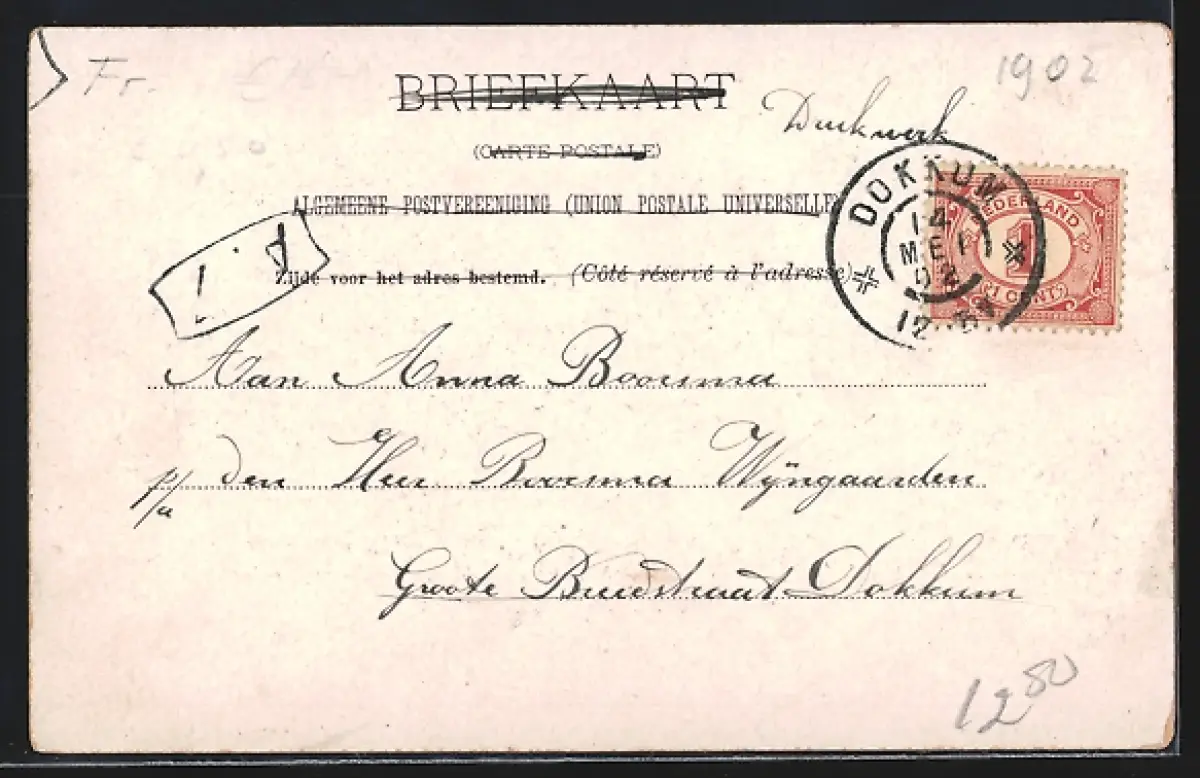 Fr.
1902
BRIEFKAART
Drukwerk
(CARTE POSTALE)
ALGEMEENE POSTVEREENIGING (UNION POSTALE UNIVERSELLE)
Zijde voor het adres bestemd. (Côté réservé à l'adresse)
DOKKUM
14
MEI
02
12
NEDERLAND
1
(1 CENT)
Aan Anna Boorsma
p/a den Heer Boorsma Wijngaarden
Groote Breedstraat Dokkum
12 50